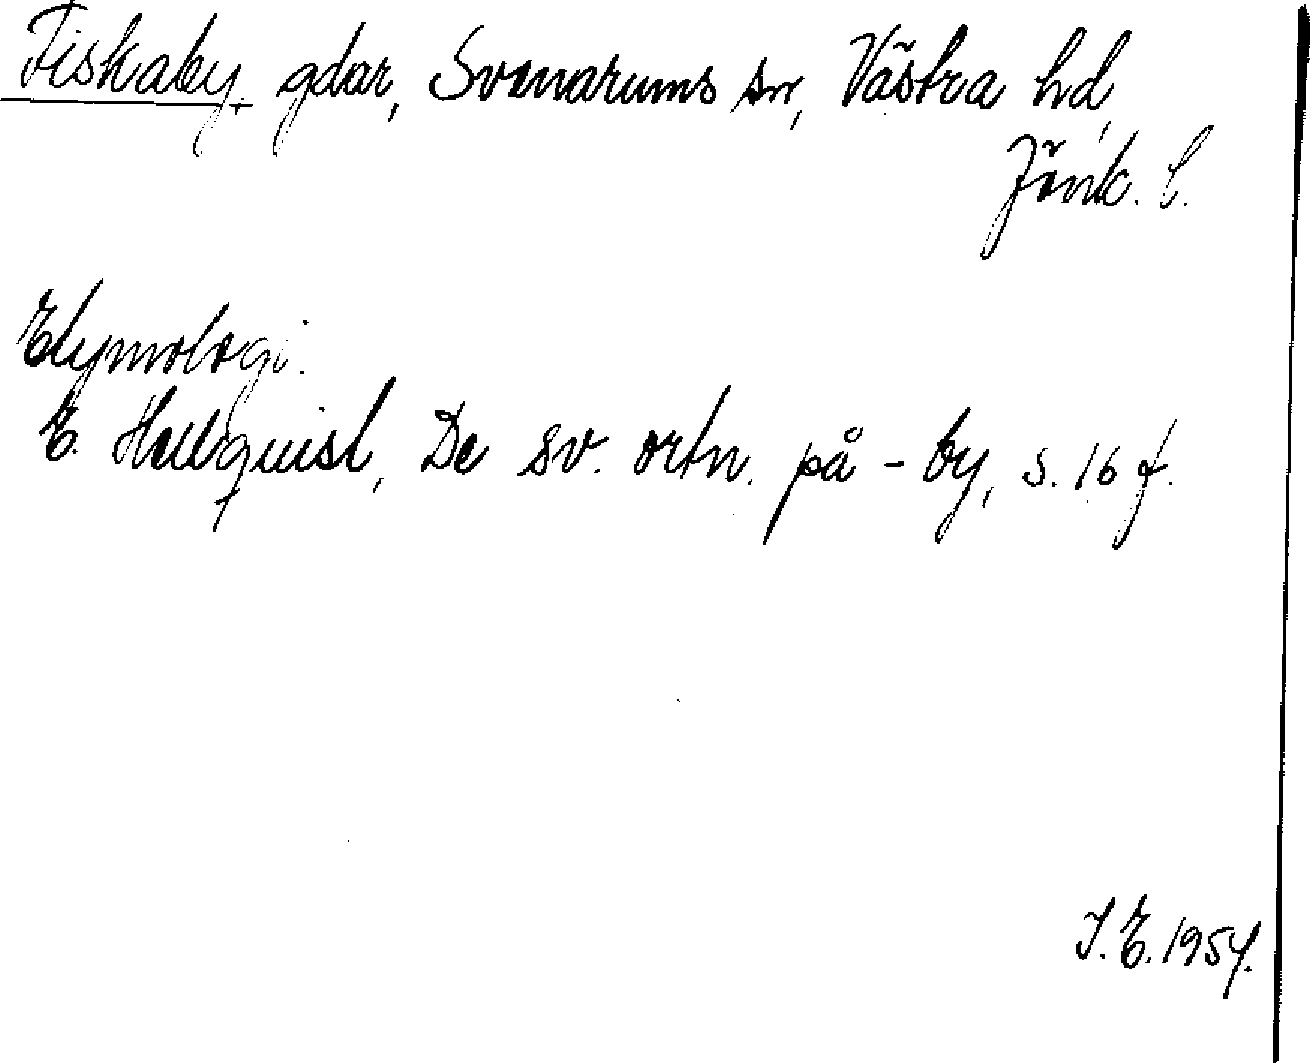 Fiskaby, gdar, Svenarums sn, Västra hd,
Jönk. l.
Etymologi.
E. Hellquist, De sv. ortn. på -by, s. 16 f.
I. E. 1954.